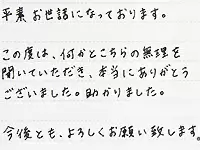 平素 お世話になっております。
この度は、何かとこちらの無理を
聞いていただき、本当にありがとう
ございました。助かりました。
今後とも、よろしくお願い致します。